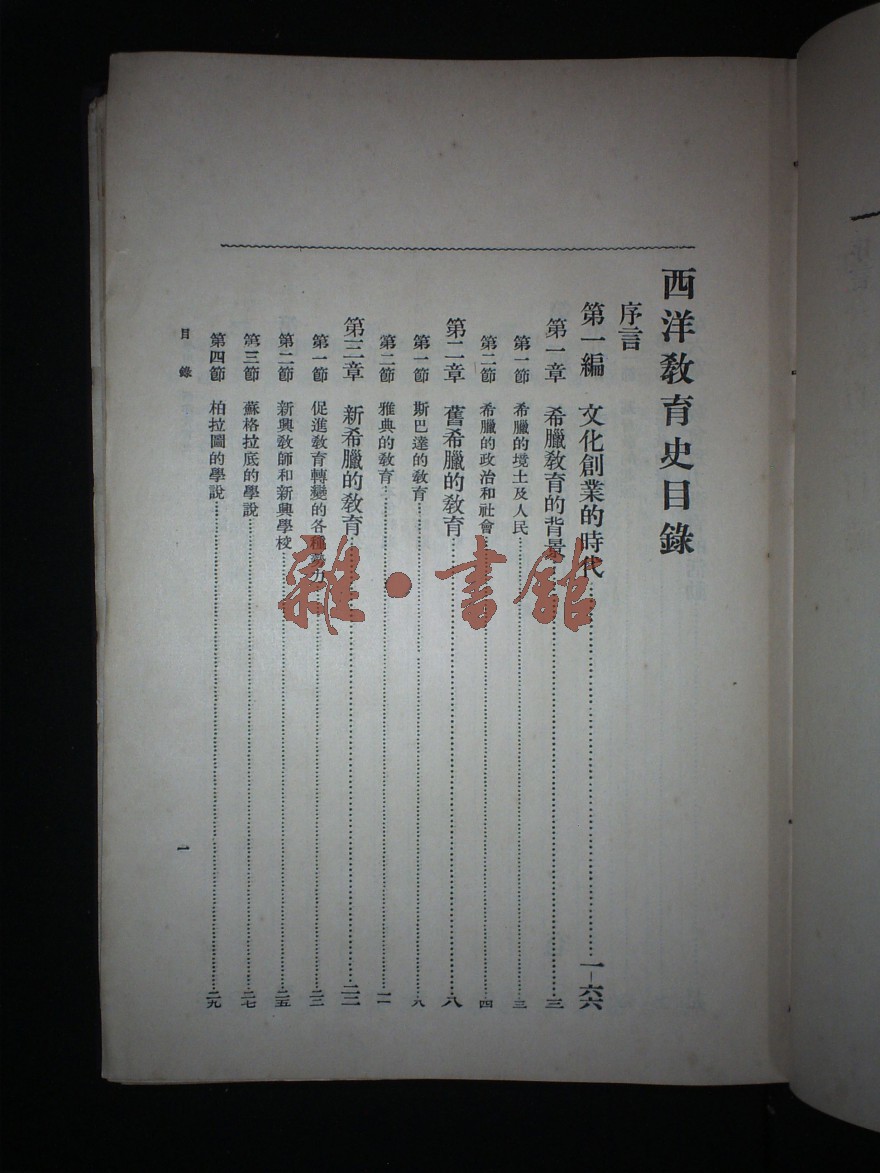 西洋教育史目錄
序言
第一編 文化創業的時代……一－六六
第一章 希臘教育的背景……三
第一節 希臘的境土及人民……三
第二節 希臘的政治和社會……四
第二章 舊希臘的教育……八
第一節 斯巴達的教育……八
第二節 雅典的教育……一一
第三章 新希臘的教育……二二
第一節 促進教育轉變的各種勢力……二二
第二節 新興教師和新興學校……二五
第三節 蘇格拉底的學說……二七
第四節 柏拉圖的學說……二九
目錄
一
雜·書館